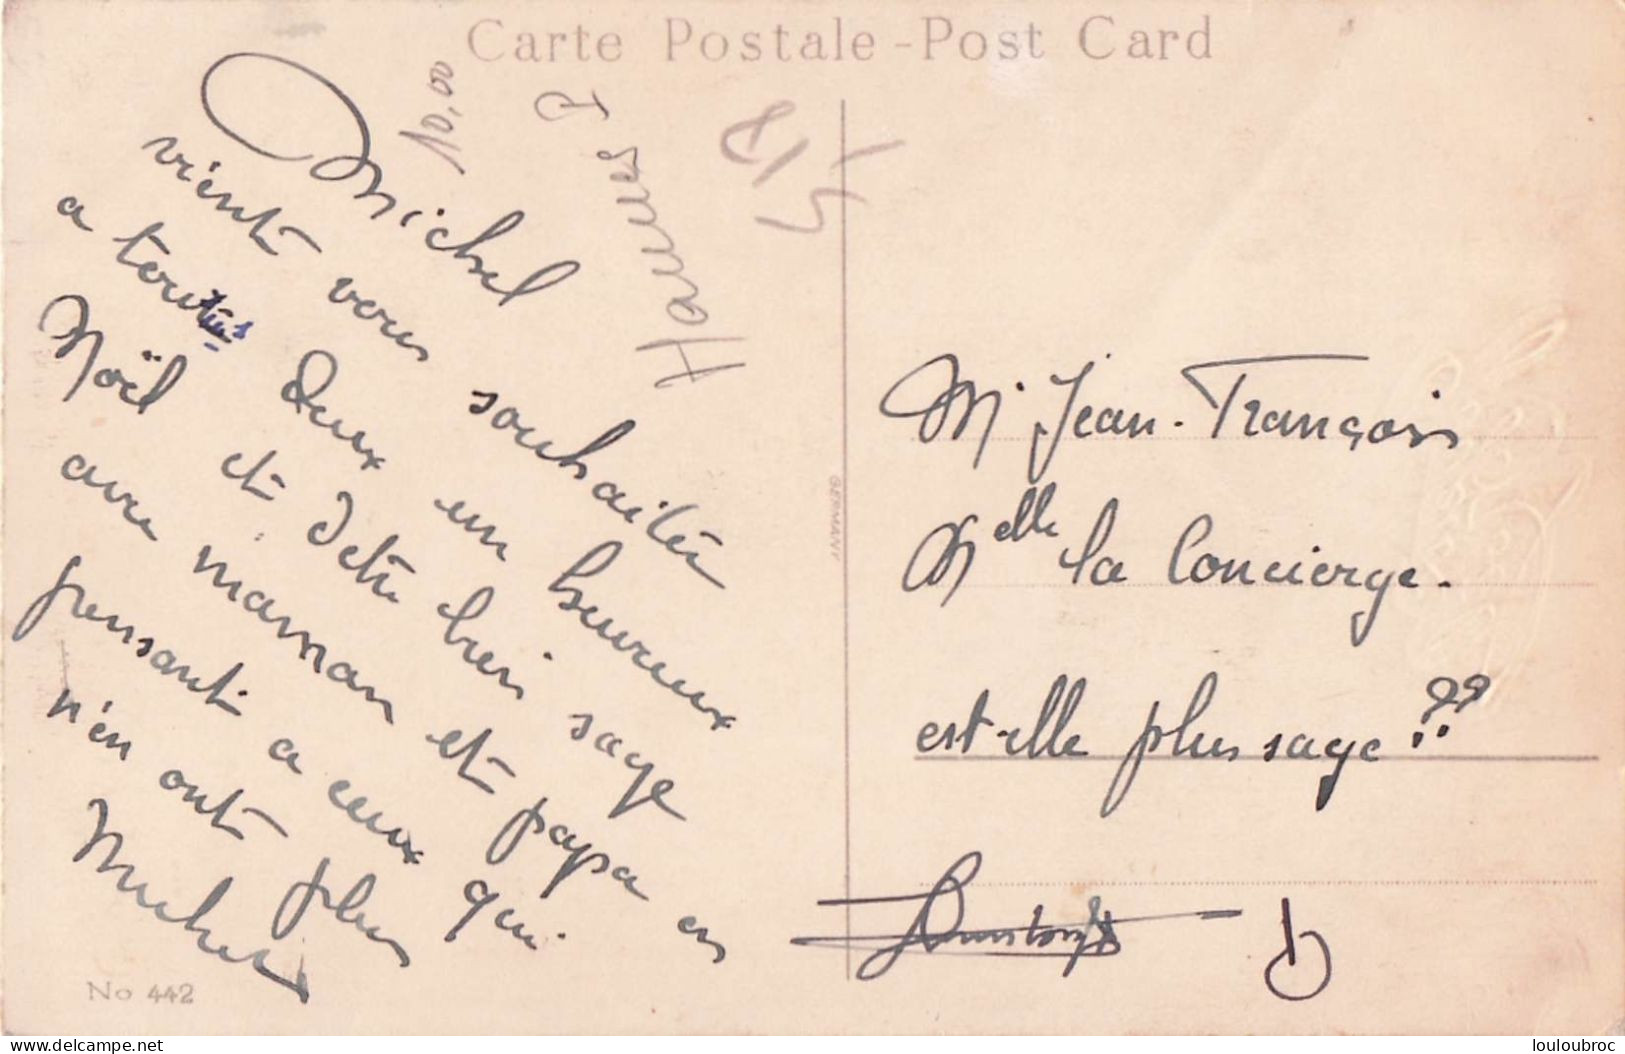 Carte Postale - Post Card
Michel
vient vous souhaiter
a tous deux un heureux
Noël et d'etre bien sage
avec maman et papa en
pensant a ceux qui
n'en ont plus
Michel
No 442
GERMANY
10,00
Mr Jean-François
Melle la Concierge.
est-elle plus sage ??
louloubroc
delcampe.net